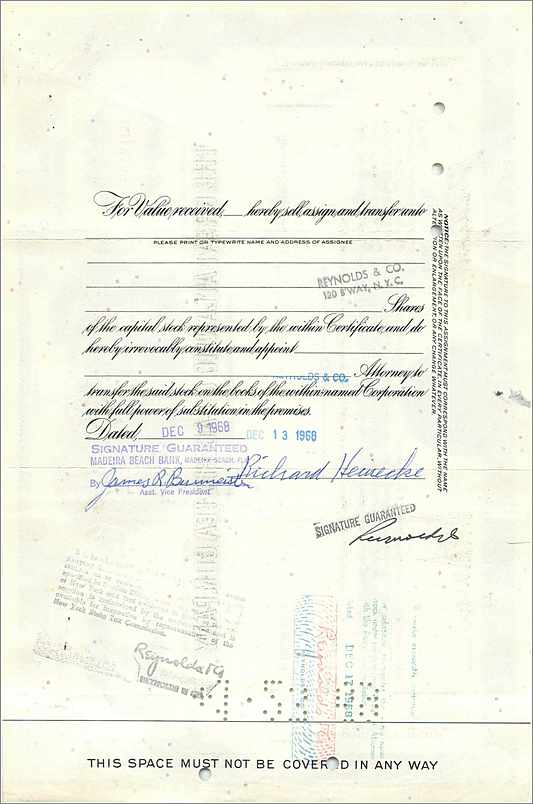 For Value received, ___ hereby sell, assign, and transfer unto
PLEASE PRINT OR TYPEWRITE NAME AND ADDRESS OF ASSIGNEE
REYNOLDS & CO.
120 B'WAY, N.Y.C.
Shares
of the capital stock represented by the within Certificate, and do
hereby irrevocably constitute and appoint
REYNOLDS & CO.
Attorney to
transfer the said stock on the books of the within named Corporation
with full power of substitution in the premises.
Dated, DEC 9 1968 DEC 13 1968
SIGNATURE GUARANTEED
MADEIRA BEACH BANK, MADEIRA BEACH, FLA.
By James R. Burmeister Richard Heinecke
Asst. Vice President
SIGNATURE GUARANTEED
Reynolds
NOTICE: THE SIGNATURE TO THIS ASSIGNMENT MUST CORRESPOND WITH THE NAME
AS WRITTEN UPON THE FACE OF THE CERTIFICATE, IN EVERY PARTICULAR, WITHOUT
ALTERATION OR ENLARGEMENT, OR ANY CHANGE WHATEVER.
available for inspection by representatives of the
New York State Tax Commission.
Reynolds & Co
DEC 17 1968
THIS SPACE MUST NOT BE COVERED IN ANY WAY